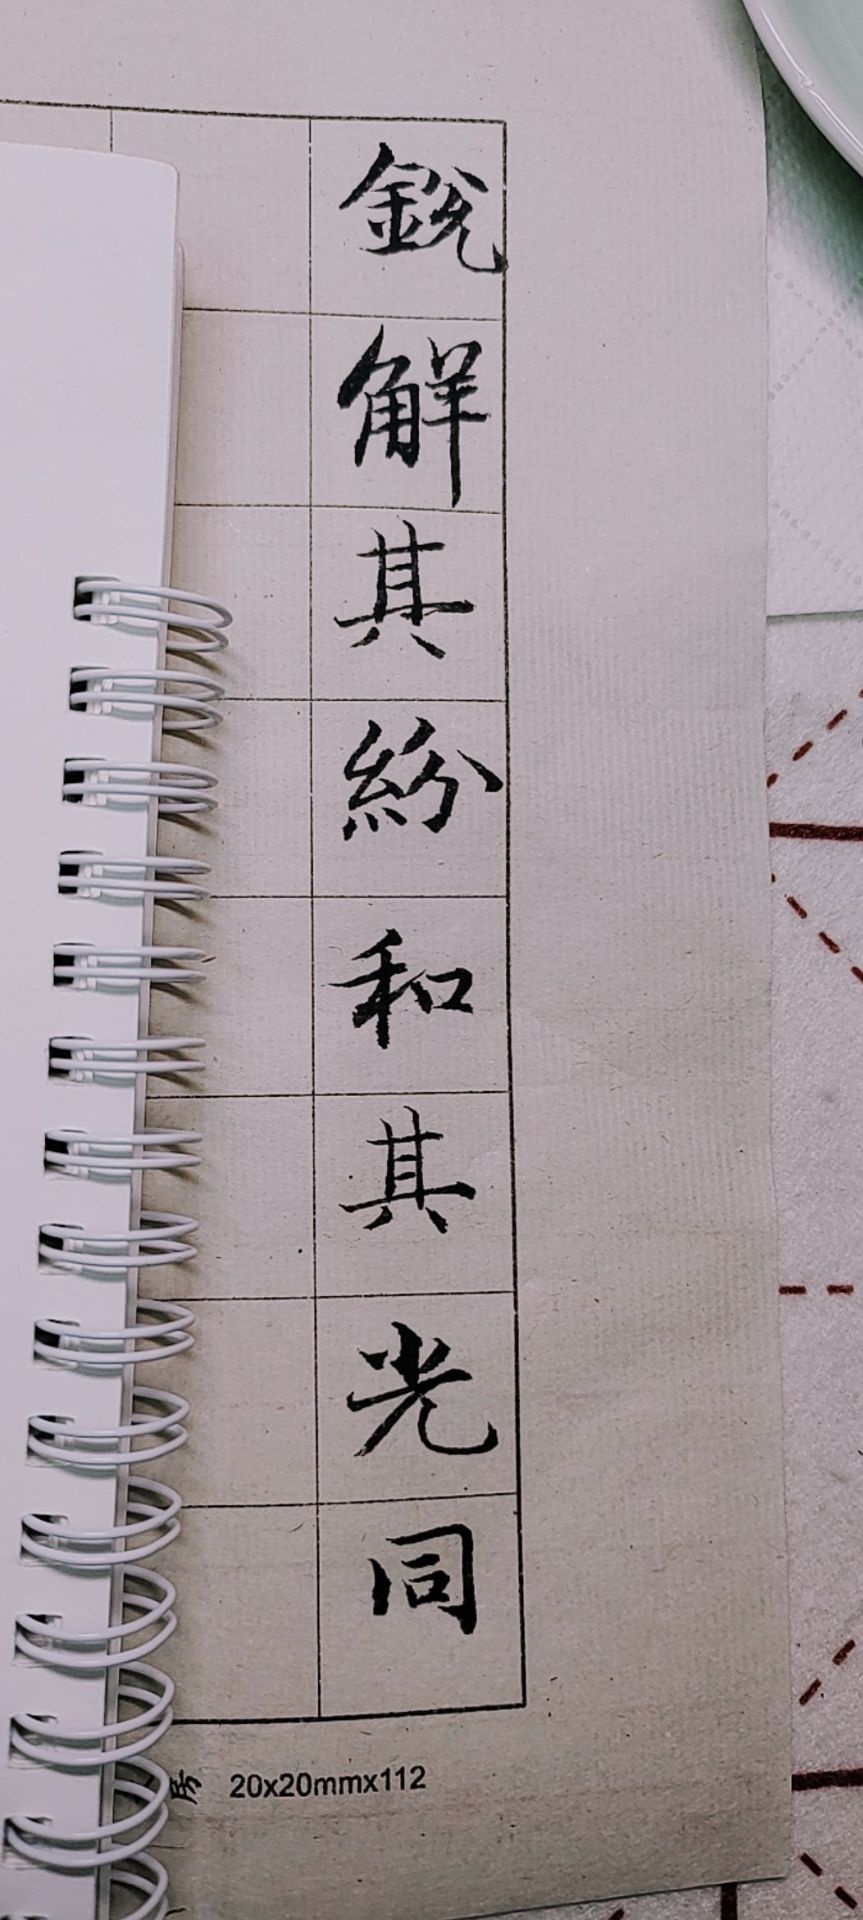 銳解其紛和其光同
房 20x20mmx112